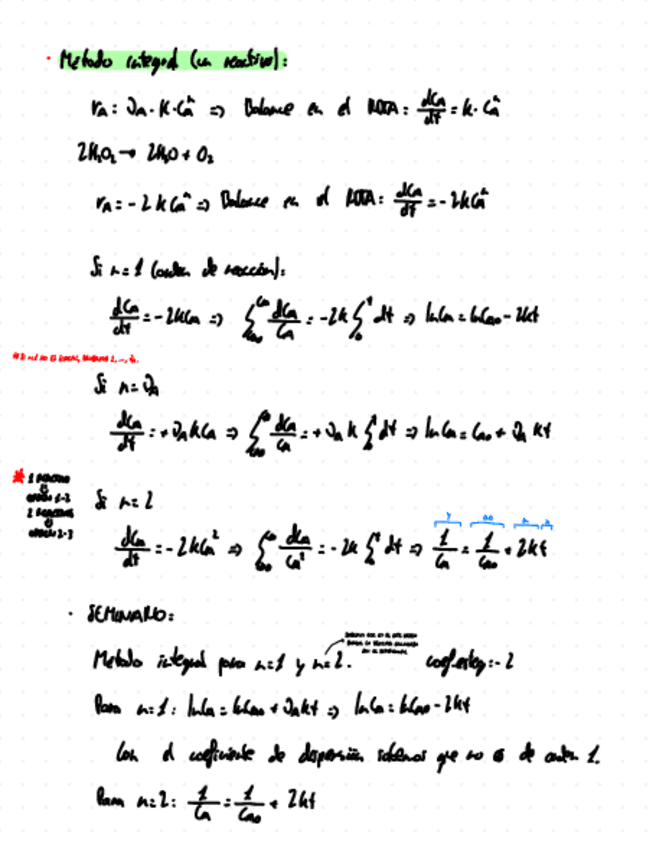 · Método integral (un reactivo):
r_A = ν_A · k · C_A^n => Balance en el RDTA: dC_A/dt = k · C_A^n
2H₂O₂ → 2H₂O + O₂
r_A = -2 k C_A^n => Balance en el RDTA: dC_A/dt = -2k C_A^n
Si n=1 (orden de reacción):
dC_A/dt = -2k C_A => ∫_{C_A0}^{C_A} dC_A/C_A = -2k ∫_0^t dt => ln C_A = ln C_A0 - 2kt
Si n = ν_A
dC_A/dt = +ν_A k C_A => ∫_{C_A0}^{C_A} dC_A/C_A = +ν_A k ∫_0^t dt => ln C_A = C_A0 + ν_A kt
* 1 REACTIVO
ORDEN 1-2
2 REACTIVOS
ORDEN 2-3
Si n=2
dC_A/dt = -2k C_A² => ∫_{C_A0}^{C_A} dC_A/C_A² = -2k ∫_0^t dt => 1/C_A = 1/C_A0 + 2kt
· SEMINARIO:
Método integral para n=1 y n=2. coef. esteq: -2
Para n=1: ln C_A = ln C_A0 + ν_A kt => ln C_A = ln C_A0 - 2kt
Con el coeficiente de dispersión sabemos que no es de orden 1.
Para n=2: 1/C_A = 1/C_A0 + 2kt